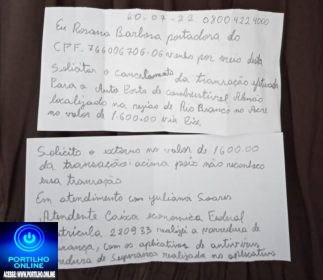 20-07-22 0800 422 4000
Eu Rosana Barbosa portadora do
CPF. 766006706-06 venho por meio desta
Solicitar o Cancelamento da transação efetuada
Para o Auto Posto de combustível Alemão
localizado na região de Rio Branco no Acre
no valor de 1.600.00 via Pix
Solicito o extorno no valor de 1600.00
da transação acima pois não reconheço
essa transação
Em atendimento com Yuliana Soares
Atendente Caixa economica Federal
atricula 220933 realizei a varredura de
urança, com os aplicativos de antivirus
redura de Segurança realizada no aplicativo
PORTILHO
ONLINE
ACESSE: WWW.PORTILHO.ONLINE